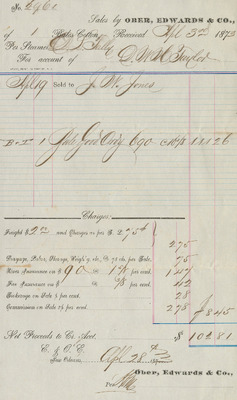 No. 2960
Sales by OBER, EDWARDS & CO.,
of 1 Bales Cotton, Received Apl 3rd 1872
Per Steamer
For account of D. W. H. Taylor
Apl 19 Sold to J. W. Jones
B I 1 Bale 690 111 26
Charges:
Freight $ 2 and Charges as per B. 2 75
2 75
Drayage, Labor, Storage, Weigh'g, etc. @ 75 cts. per Bale. 75
River Insurance on $ 90 @ per cent. 1 47
Fire Insurance on $ @ per cent. 42
Brokerage on Sale per cent. 28
Commission on Sale 2½ per cent. 2 78 8 45
Net Proceeds to Cr. Acct. $ 102 81
E. & O. E.
New Orleans, Apl 28th 187
Ober, Edwards & Co.,
Per